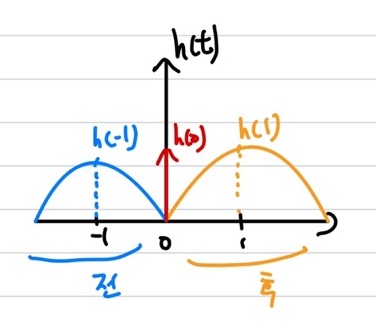 h(t)
h(-1) h(0) h(1)
-1 0 1
전 후